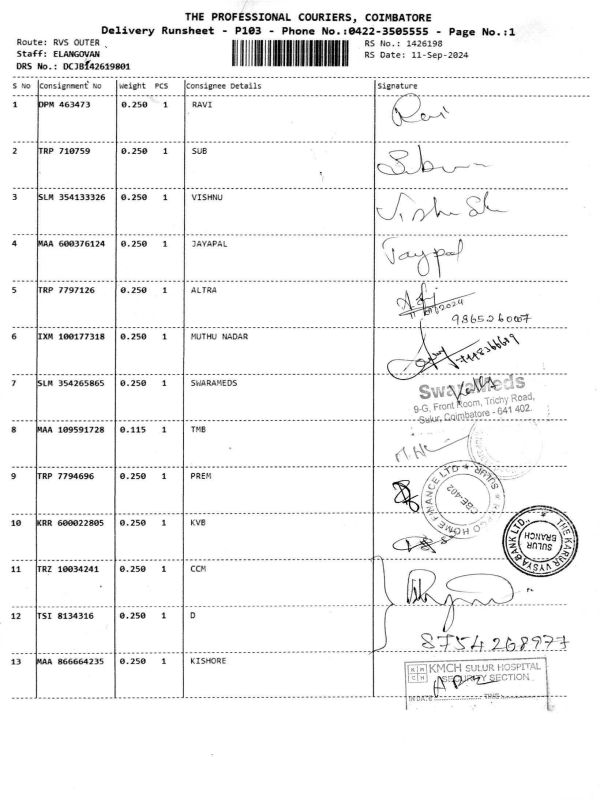 THE PROFESSIONAL COURIERS, COIMBATORE
Delivery Runsheet - P103 - Phone No.:0422-3505555 - Page No.:1
Route: RVS OUTER
RS No.: 1426198
Staff: ELANGOVAN
RS Date: 11-Sep-2024
DRS No.: DCJB142619801
S No Consignment No Weight PCS Consignee Details Signature
1 DPM 463473 0.250 1 RAVI Ravi
2 TRP 710759 0.250 1 SUB
3 SLM 354133326 0.250 1 VISHNU
4 MAA 600376124 0.250 1 JAYAPAL Jaypal
5 TRP 7797126 0.250 1 ALTRA
9865260007
6 IXM 100177318 0.250 1 MUTHU NADAR
7 SLM 354265865 0.250 1 SWARAMEDS
Swarameds
9-G, Front Room, Trichy Road,
Sulur, Coimbatore - 641 402.
8 MAA 109591728 0.115 1 TMB
9 TRP 7794696 0.250 1 PREM
HOME FINANCE LTD * SULUR *
CBE-402
10 KRR 600022805 0.250 1 KVB
THE KARUR VYSYA BANK LTD.,
SULUR
BRANCH
11 TRZ 10034241 0.250 1 CCM
12 TSI 8134316 0.250 1 D
8754268977
13 MAA 866664235 0.250 1 KISHORE
KMCH SULUR HOSPITAL
SECURITY SECTION